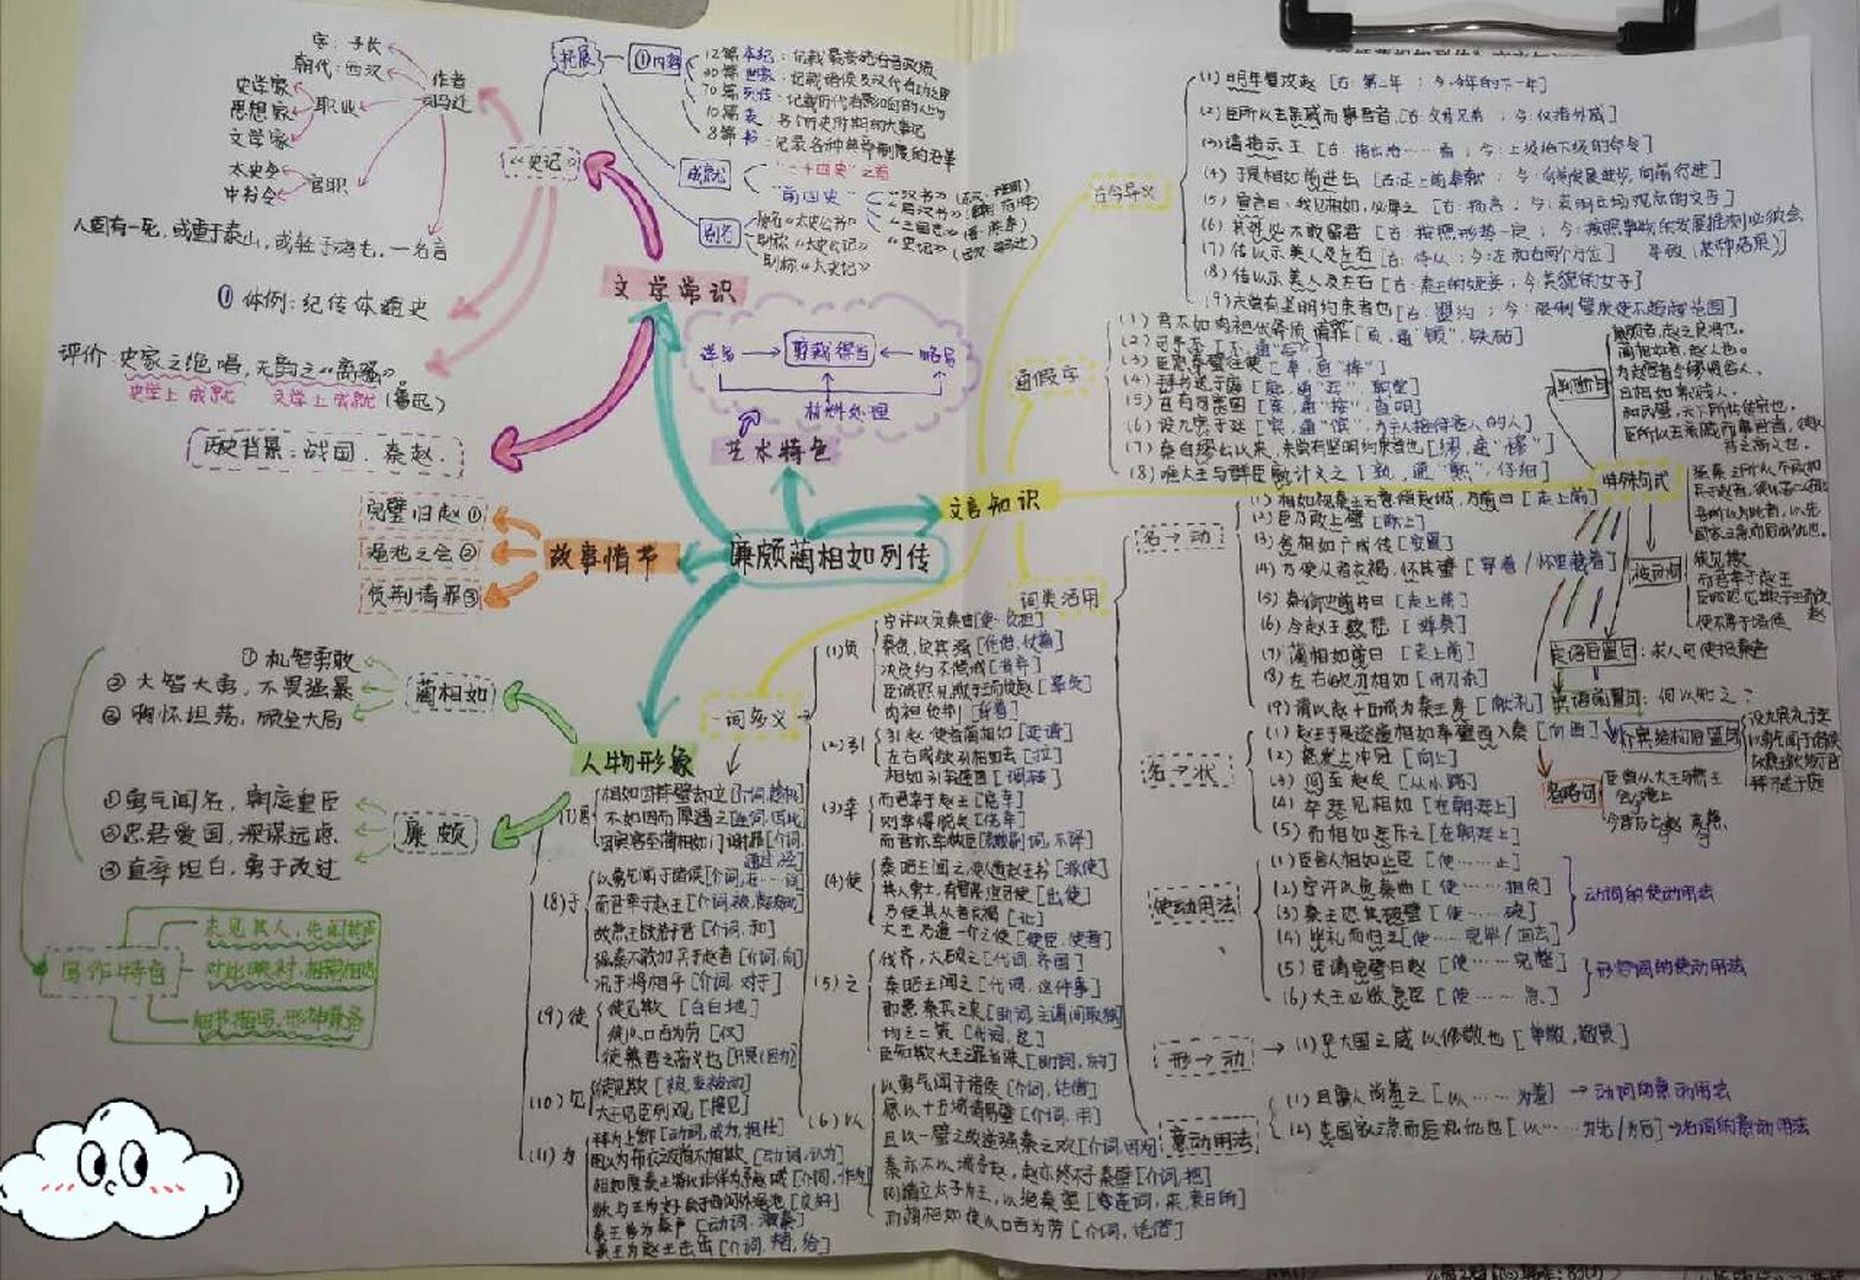 廉颇蔺相如列传
文学常识
《史记》
作者
司马迁
字：子长
朝代：西汉
职业
史学家
思想家
文学家
官职
太史令
中书令
人固有一死，或重于泰山，或轻于鸿毛。—名言
① 体例：纪传体通史
评价：史家之绝唱，无韵之“离骚”
史学上成就 文学上成就（鲁迅）
历史背景：战国．秦赵．
拓展
①内容
12篇 本纪：记载最高统治者政绩
30篇 世家：记载诸侯及汉代有功之臣
70篇 列传：记载历代有影响的人物
10篇 表：各个历史时期的大事记
8篇 书：记录各种典章制度的沿革
成就
“二十四史”之首
“前四史”
“汉书”
“后汉书”
“三国志”
“史记”
别名
原名《太史公书》
别称《太史公记》
别称《太史记》
艺术特色
详易 剪裁得当 略易
材料处理
故事情节
完璧旧赵①
渑池之会②
负荆请罪③
人物形象
蔺相如
① 机智勇敢
② 大智大勇，不畏强暴
③ 胸怀坦荡，顾全大局
廉颇
①勇气闻名，朝庭重臣
②忠君爱国，深谋远虑
③直率坦白，勇于改过
写作特色
未见其人，先闻其声
对比映衬，相得相彰
细节描写，形神兼备
文言知识
古今异义
(1) 明年复攻赵［古：第二年；今：今年的下一年］
(2)臣所以去亲戚而事君者［古：父母兄弟；今：仅指外戚］
(3)请指示王［古：指出给……看；今：上级给下级的命令］
(4) 于是相如前进缶［古：走上前奉献；今：向前发展进步，向前行进］
(5) 宣言曰：我见相如，必辱之［古：扬言；今：表明立场观点的文告］
(6) 其势必不敢留君［古：按照形势一定；今：按照事物的发展推测必须会
导致（某种结果）］
(7) 传以示美人及左右［古：侍从；今：左和右两个方位］
(8) 传以示美人及左右［古：秦王的姬妾；今：美貌的女子］
(9)未尝有坚明约束者也［古：盟约；今：限制管束使不超越范围］
通假字
(1) 君不如肉袒伏斧质请罪［质，通“锧”，铁砧］
(2) 可予不［不，通“否”］
(3) 臣愿奉璧往使［奉，通“捧”］
(4) 拜书送于庭［庭，通“廷”，朝堂］
(6) 设九宾于廷［宾，通“傧”，为主人接待客人的人］
(7) 秦自缪公以来，未尝有坚明约束者也［缪，通“穆”］
(8) 唯大王与群臣孰计议之［孰，通“熟”，仔细］
词类活用
名→动
(1) 相如视秦王无意偿赵城，乃前曰［走上前］
(2) 臣乃敢上璧［献上］
(3) 舍相如广成传［安置］
(4) 乃使从者衣褐，怀其璧［穿着/怀里藏着］
(5) 秦御史前书曰［走上前］
(6) 令赵王鼓瑟［弹奏］
(7) 蔺相如前曰［走上前］
(8) 左右欲刃相如［用刀杀］
(9) 请以赵十五城为秦王寿［献礼］
名→状
(1) 赵王于是遂遣相如奉璧西入秦［向西］
(2) 怒发上冲冠［向上］
(3) 间至赵矣［从小路］
(4) 卒廷见相如［在朝廷上］
(5) 而相如廷斥之［在朝廷上］
使动用法
(1) 臣舍人相如止臣［使……止］
(2) 宁许以负秦曲［使……担负］
(3) 秦王恐其破璧［使……破］
(4) 毕礼而归之［使……完毕/回去］
动词的使动用法
(5) 臣请完璧归赵［使……完整］
(6) 大王必欲急臣［使……急］
形容词的使动用法
形→动
(1) 严大国之威以修敬也［尊敬，敬畏］
意动用法
(1) 且庸人尚羞之［以……为羞］→动词的意动用法
(2) 先国家之急而后私仇也［以……为先/为后］→名词的意动用法
特殊句式
判断句
廉颇者，赵之良将也。
蔺相如者，赵人也。
为赵宦者令缪贤舍人。
且相如素贱人。
和氏璧，天下所共传宝也。
臣所以去亲戚而事君者，徒慕
君之高义也。
强秦之所以不敢加
兵于赵者，徒以吾二人也。
吾所以为此者，以先
国家之急而后私仇也。
被动句
徒见欺
而君幸于赵王
臣诚恐见欺于王而负
赵
使不辱于诸侯
定语后置句：求人可使报秦者
宾语前置句：何以知之？
介宾结构后置句
设九宾礼于廷
以勇气闻于诸侯
故燕王欲结于君
拜送于庭
省略句
一词多义
(1)负
宁许以负秦曲［使…负担］
秦贪，负其强［凭借，仗着］
决负约不偿城［背弃］
臣诚恐见欺于王而负赵［辜负］
肉袒负荆［背着］
(2)引
引赵使者蔺相如［延请］
左右或欲引相如去［拉］
相如引车避匿［调转］
(3)幸
而君幸于赵王［宠幸］
则幸得脱矣［侥幸］
(4)使
秦昭王闻之，使人遗赵王书［派使］
其人勇士，有智谋，宜可使［出使］
乃使其从者衣褐［让］
大王乃遣一介之使［使臣，使者］
(5)之
伐齐，大破之［代词，齐国］
秦昭王闻之［代词，这件事］
均之二策［代词，这］
臣知欺大王之罪当诛［助词，的］
(6)以
以勇气闻于诸侯［介词，凭借］
愿以十五城请易璧［介词，用］
且以一璧之故逆强秦之欢［介词，因为］
秦亦不以城予赵，赵亦终不予秦璧［介词，把］
则请立太子为王，以绝秦望［连词，来，表目的］
而蔺相如徒以口舌为劳［介词，凭借］
(7)因
相如因持璧却立［介词，趁机］
不如因而厚遇之［连词，因此］
因宾客至蔺相如门谢罪［介词，
通过，经］
(8)于
以勇气闻于诸侯［介词，在……］
而君幸于赵王［介词，被，表被动］
故燕王欲结于君［介词，和］
强秦不敢加兵于赵者［介词，向］
况于将相乎［介词，对于］
(9)徒
徒见欺［白白地］
徒以口舌为劳［仅］
徒慕君之高义也［只是(因为)］
(10)见
徒见欺［被，表被动］
大王见臣列观［接见］
(11)为
拜为上卿［动词，成为，担任］
且以为布衣之交尚不相欺［动词，认为］
秦王为赵王击缶［介词，替，给］